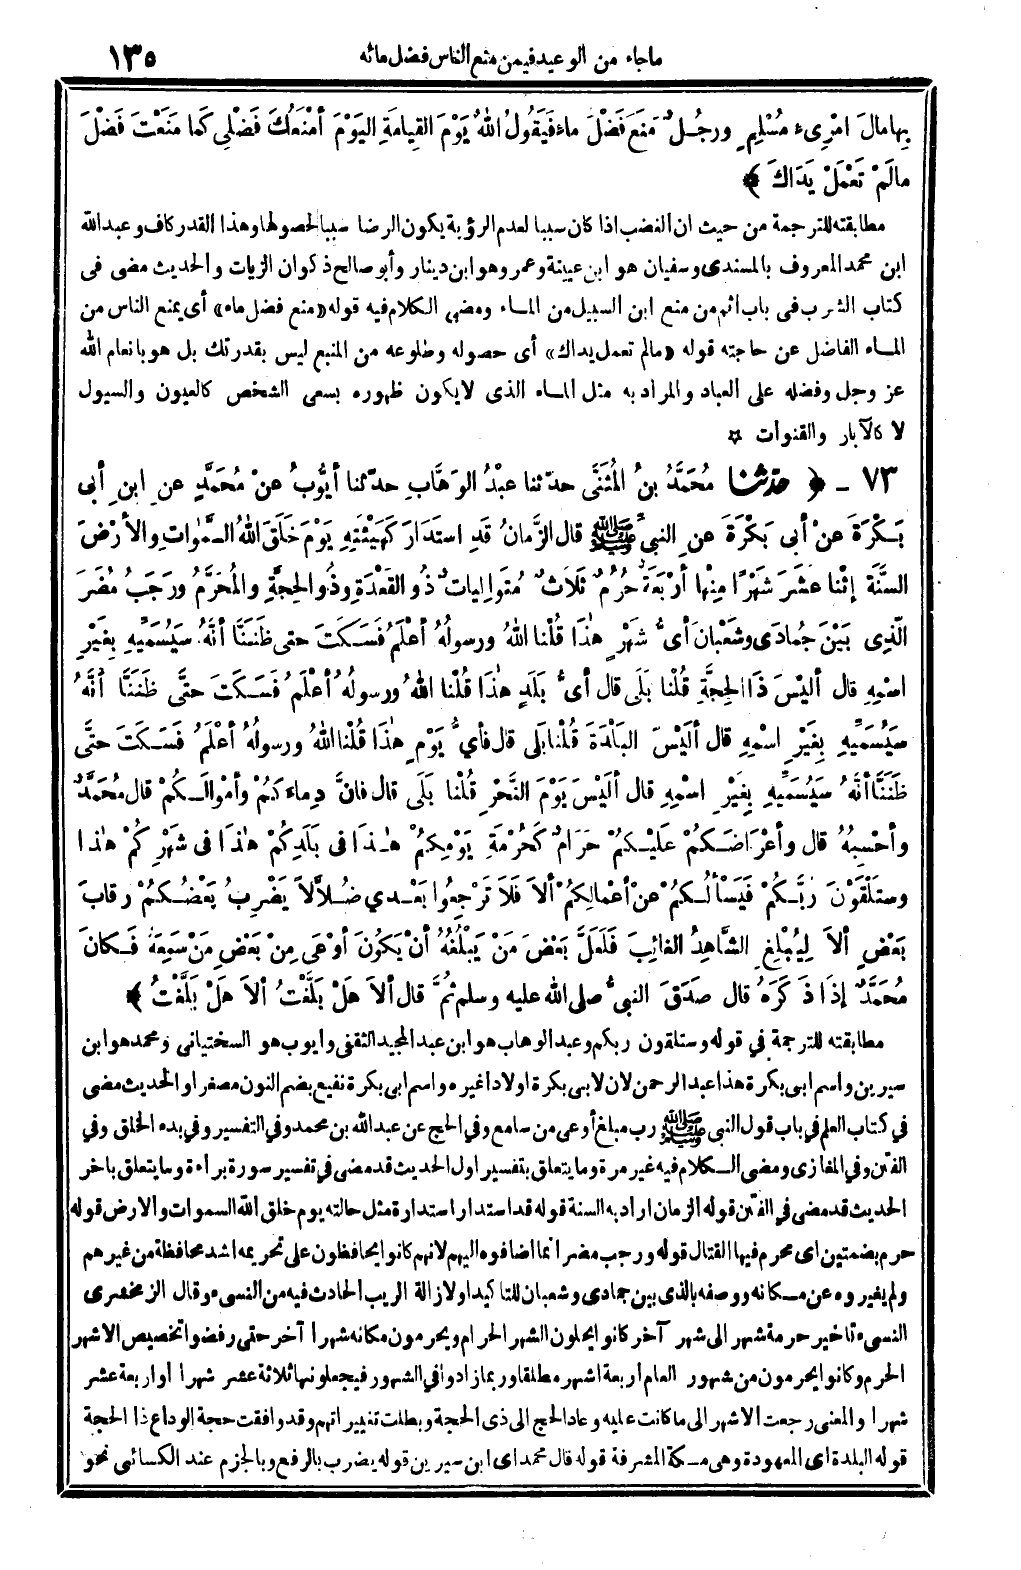 ماجاء من الوعيد فيمن منع الناس فضل مائه ١٣٥
بِها مالَ امْرِىءٍ مُسْلِمٍ ورجُـلٌ مَنَعَ فَضْلَ ماءٍ فَيَقُولُ اللهُ يَوْمَ القِيامَةِ اليَوْمَ أمْنَعُكَ فَضْلِى كَما مَنَعْتَ فَضْلَ
مالَمْ تَعْمَلْ يَدَاكَ ﴾
مطابقته للترجمة من حيث ان الغضب اذا كان سببا لعدم الرؤية يكون الرضا سببا لحصولها وهذا القدر كاف وعبد الله
ابن محمد المعروف بالمسندى وسفيان هو ابن عيينة وعمرو هو ابن دينار وأبو صالح ذكوان الزيات والحديث مضى فى
كتاب الشرب فى باب اثم من منع ابن السبيل من المـاء ومضى الكلام فيه قوله «منع فضل ماء» أى يمنع الناس من
المـاء الفاضل عن حاجته قوله «مالم تعمل يداك» أى حصوله وطلوعه من المنبع ليس بقدرتك بل هو بانعام الله
عز وجل وفضله على العباد والمراد به مثل المـاء الذى لا يكون ظهوره بسعى الشخص كالعيون والسيول
لا كالآبار والقنوات ✡
٧٣ - ﴿ حدثنا مُحَمَّدُ بنُ المُثَنَّى حدّثنا عبْدُ الوَهَّابِ حدّثنا أيُّوبُ عنْ مُحَمَّدٍ عنِ ابنِ أبى
بَـكْرَةَ عنْ أبى بَكْرَةَ عنِ النبىِّ ﷺ قال الزَّمانُ قَدِ استَدَارَ كَهَيْئَتِهِ يَوْمَ خَلَقَ اللهُ السَّمٰوَاتِ والأرْضَ
السَّنَةَ إثْنا عشَرَ شَهْرًا مِنْها أرْبَعَةٌ حُرُمٌ ثَلاَثٌ مُتَوالِياتٌ ذُو القَعْدَةِ وذُو الحِجَّةِ والمُحَرَّمُ ورَجَبُ مُضَرَ
الّذِى بَيْنَ جُمادَى وشَعْبانَ أىُّ شَهْرٍ هٰذَا قُلْنا اللهُ ورسولُهُ أعْلَمُ فَسَكَتَ حتى ظَنَنَّا أنَّهُ سَيُسَمِّيهِ بِغَيْرِ
اسْمِهِ قال أليْسَ ذَا الحِجَّةِ قُلْنا بَلَى قال أىُّ بَلَدٍ هٰذَا قُلْنا اللهُ ورسولُهُ أعْلَمُ فَسَكَتَ حتَّى ظَنَنَّا أنَّهُ
سَيُسَمِّيهِ بِغَيْرِ اسْمِهِ قال ألَيْسَ البَلْدَةَ قُلْنا بَلى قال فأىُّ يَوْمٍ هذَا قُلْنا اللهُ ورسولُهُ أعْلَمُ فَسَكَتَ حتَّى
ظَنَنَّا أنَّهُ سَيُسَمِّيهِ بِغَيْرِ اسْمِهِ قال ألَيْسَ يَوْمَ النَّحْرِ قُلْنا بَلَى قال فإنَّ دِماءَكُمْ وأمْوالَـكُمْ قال مُحَمَّدٌ
وأحْسِبُهُ قال وأعْرَاضَـكُمْ عَلَيْـكُمْ حَرَامٌ كَحُرْمَةِ يَوْمِكُمْ هٰـذَا فى بَلَدِكُمْ هٰذَا فى شَهْرِكُمْ هٰذا
وستَلْقَوْنَ رَبَّـكُمْ فَيَسْألُـكُمْ عنْ أعْمالِكُمْ ألاَ فَلاَ تَرْجِعُوا بَعْـدِي ضُـلاَّلاً يَضْرِبُ بَعْضُـكُمْ رِقابَ
بَعْضٍ ألاَ لِيُبْلِغِ الشَّاهِدُ الغائِبَ فَلَعَلَّ بَعْضَ مَنْ يَبْلُغُهُ أنْ يَكُونَ أوْعَى مِنْ بَعْضِ مَنْ سَمِعَهُ فَـكانَ
مُحَمَّدٌ إذَا ذَكَرَهُ قال صَدَقَ النبىُّ صلى الله عليه وسلم ثُمَّ قال ألاَ هَلْ بَلَّغْتُ ألاَ هَلْ بَلَّغْتُ ﴾
مطابقته للترجمة في قوله وستلقون ربكم وعبد الوهاب هو ابن عبد المجيد الثقفى وايوب هو السختيانى ومحمد هو ابن
سيرين واسم ابى بكرة هذا عبد الرحمن لان لابى بكرة اولادا غيره واسم ابى بكرة نفيع بضم النون مصغرا والحديث مضى
في كتاب العلم في باب قول النبى ﷺ رب مبلغ أوعى من سامع وفي الحج عن عبد الله بن محمد وفي التفسير وفي بدء الخلق وفي
الفتن وفي المغازى ومضى الـكلام فيه غير مرة وما يتعلق بتفسير اول الحديث قد مضى في تفسير سورة براءة وما يتعلق باخر
الحديث قد مضى في الفتن قوله الزمان اراد به السنة قوله قد استدار استدارة مثل حالته يوم خلق الله السموات والارض قوله
حرم بضمتين اى محرم فيها القتال قوله ورجب مضر انما اضافوه اليهم لانهم كانوا يحافظون على تحريمه اشد محافظة من غيرهم
ولم يغيروه عن مـكانه ووصفه بالذى بين جمادى وشعبان للتاكيد اولازالة الريب الحادث فيه من النسىء وقال الزمخشرى
النسىء تاخير حرمة شهر الى شهر آخر كانوا يحلون الشهر الحرام ويحرمون مكانه شهرا آخر حتى رفضوا تخصيص الاشهر
الحرم وكانوا يحرمون من شهور العام اربعة اشهر مطلقا وربما زادوا في الشهور فيجعلونها ثلاثة عشر شهرا أو اربعة عشر
شهرا والمعنى رجعت الاشهر الى ما كانت عليه وعاد الحج الى ذى الحجة وبطلت تغييراتهم وقد وافقت حجة الوداع ذا الحجة
قوله البلدة اى المعهودة وهى مـكة المشرفة قوله قال محمد اى ابن سيرين قوله يضرب بالرفع وبالجزم عند الكسائى نحو